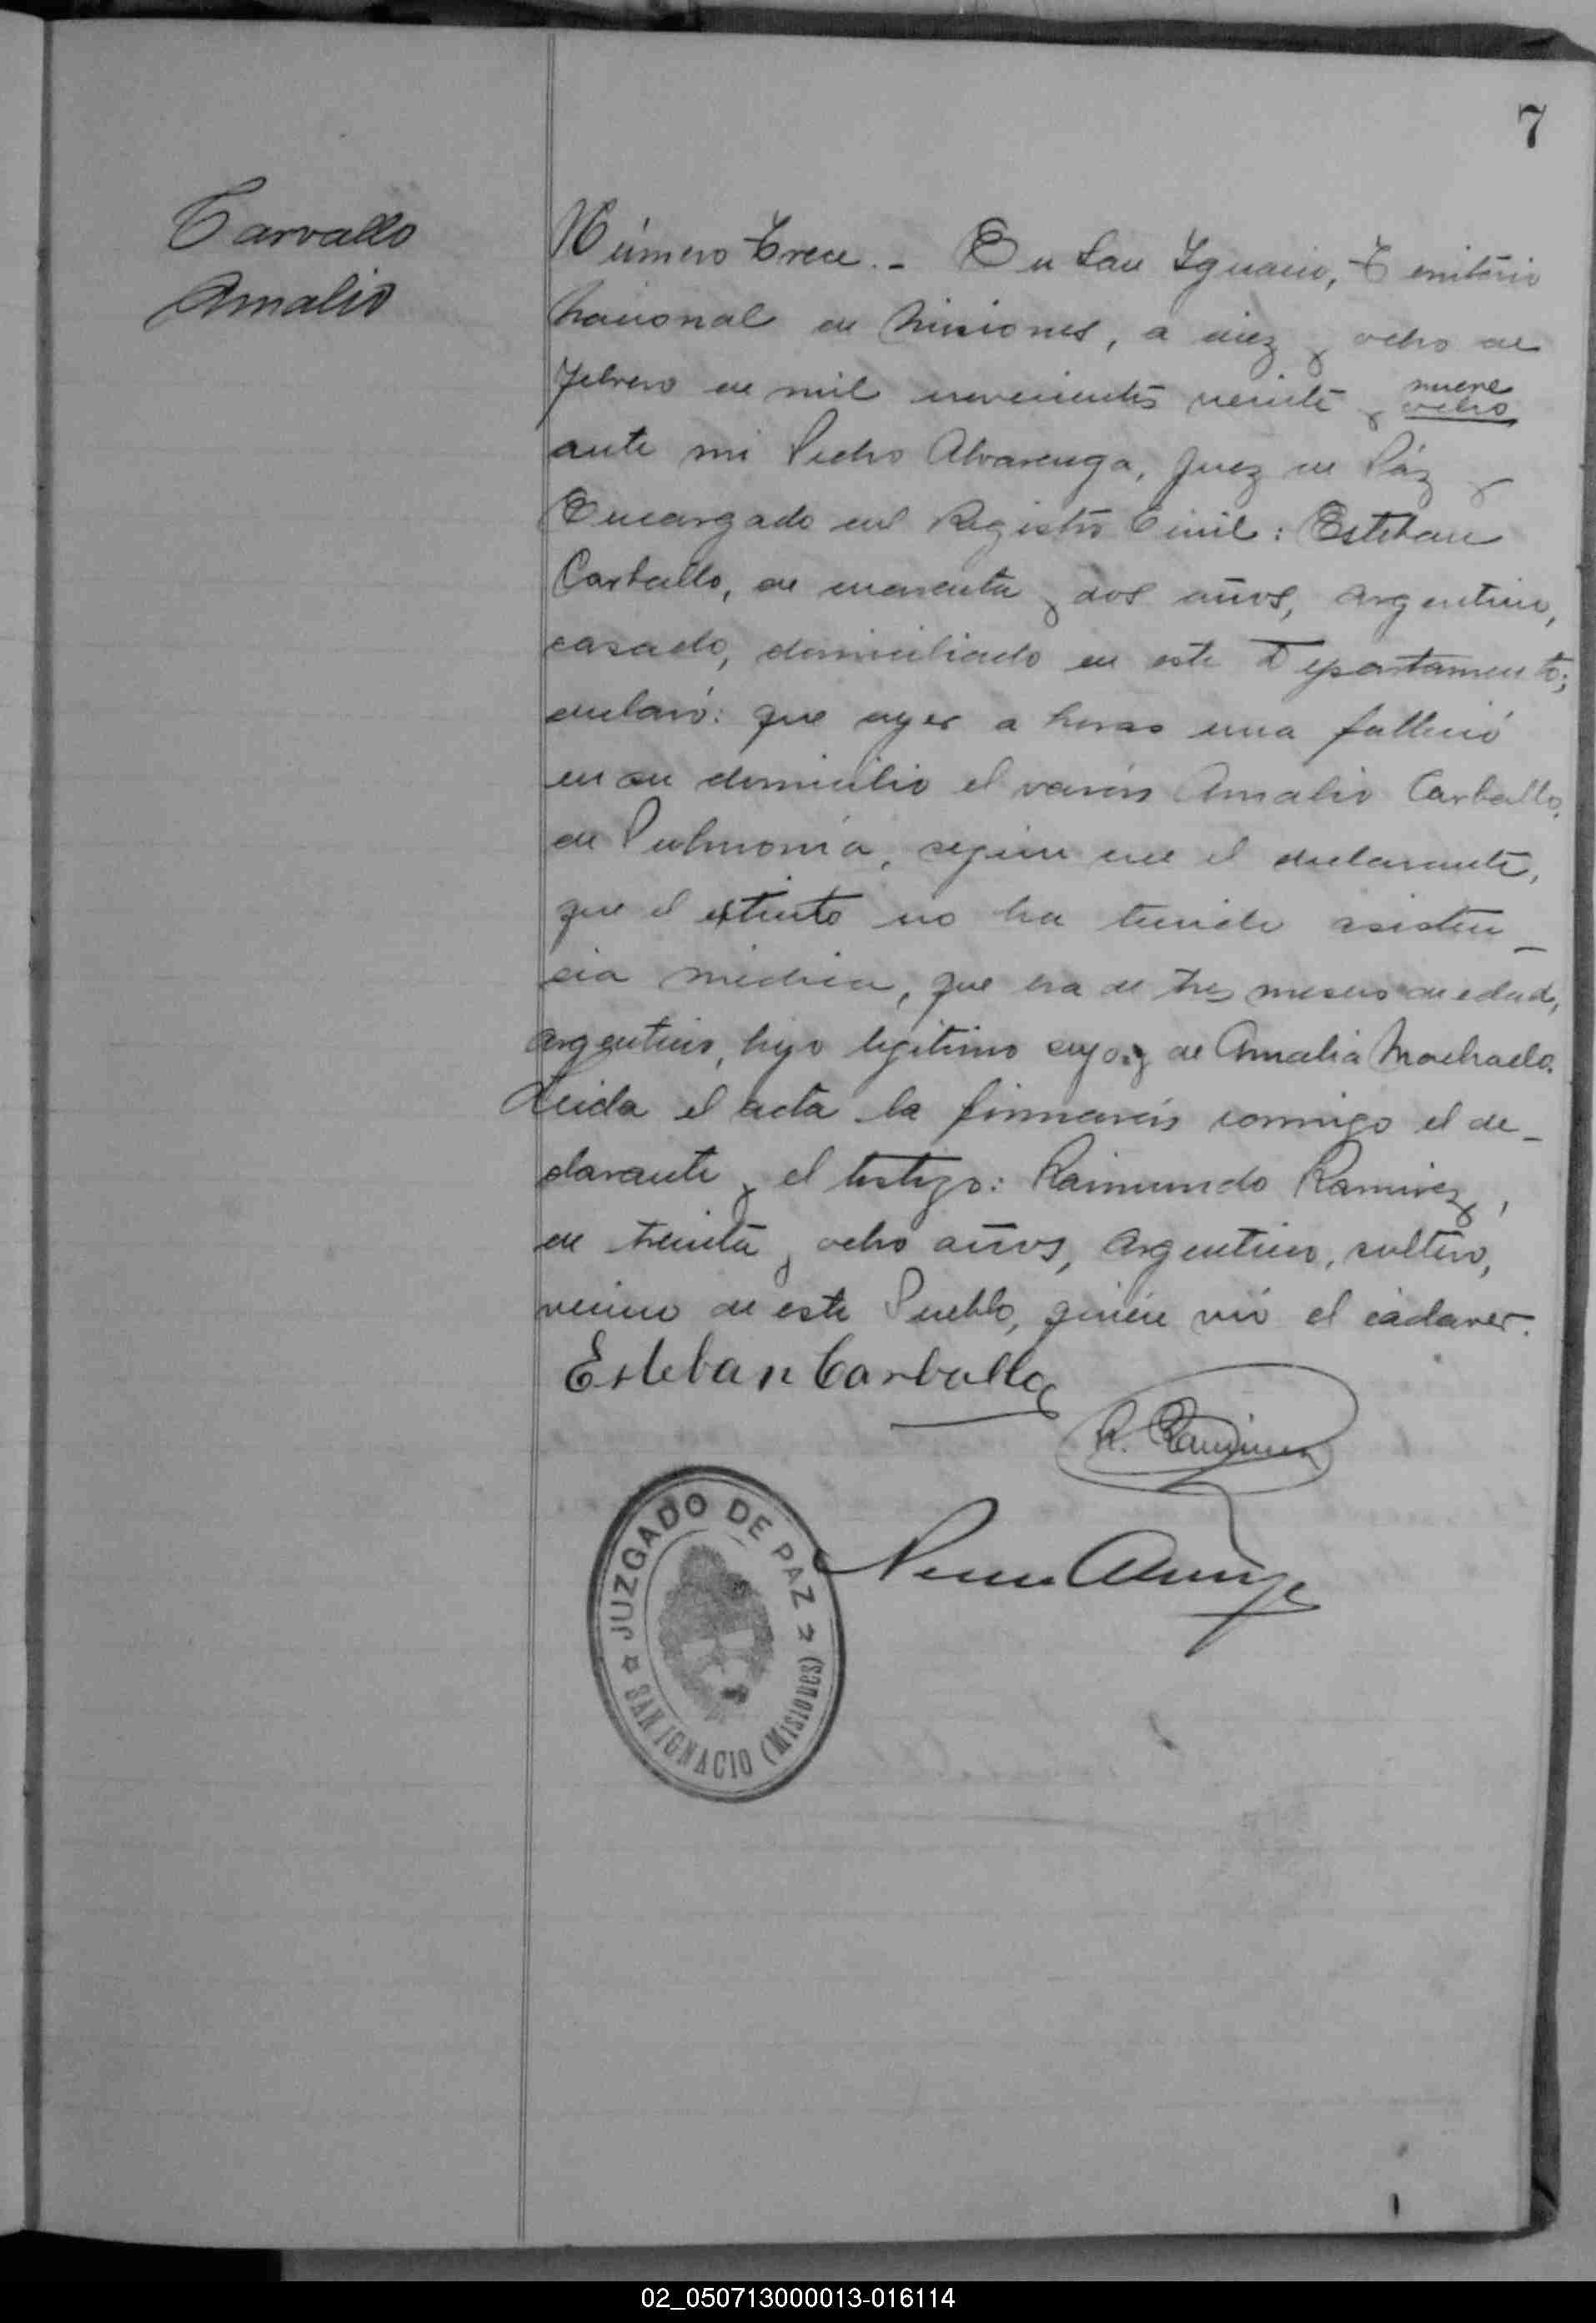 7
Carvallo
Amalio
Número trece.- En San Ignacio, Territorio
Nacional de Misiones, a diez y ocho de
febrero de mil novecientos veinte y nueve
ocho
ante mi Pedro Alvarenga, Juez de Páz y
Encargado del Registro Civil: Esteban
Carballo, de cuarenta y dos años, argentino,
casado, domiciliado en este Departamento;
declaró: que ayer a horas una falleció
en su domicilio el varón Amalio Carballo,
de Pulmonía, según cree el declarante,
que el extinto no ha tenido asisten-
cia médica, que era de tres meses de edad,
argentino, hijo legítimo suyo y de Amalia Machado.
Leída el acta la firmarón conmigo el de-
clarante y el testigo: Raimundo Ramirez,
de treinta y ocho años, argentino, soltero,
vecino de este Pueblo, quién vió el cádaver.
Esteban Carballo
R. Ramirez
JUZGADO DE PAZ
SAN IGNACIO (Misiones)
02_050713000013-016114